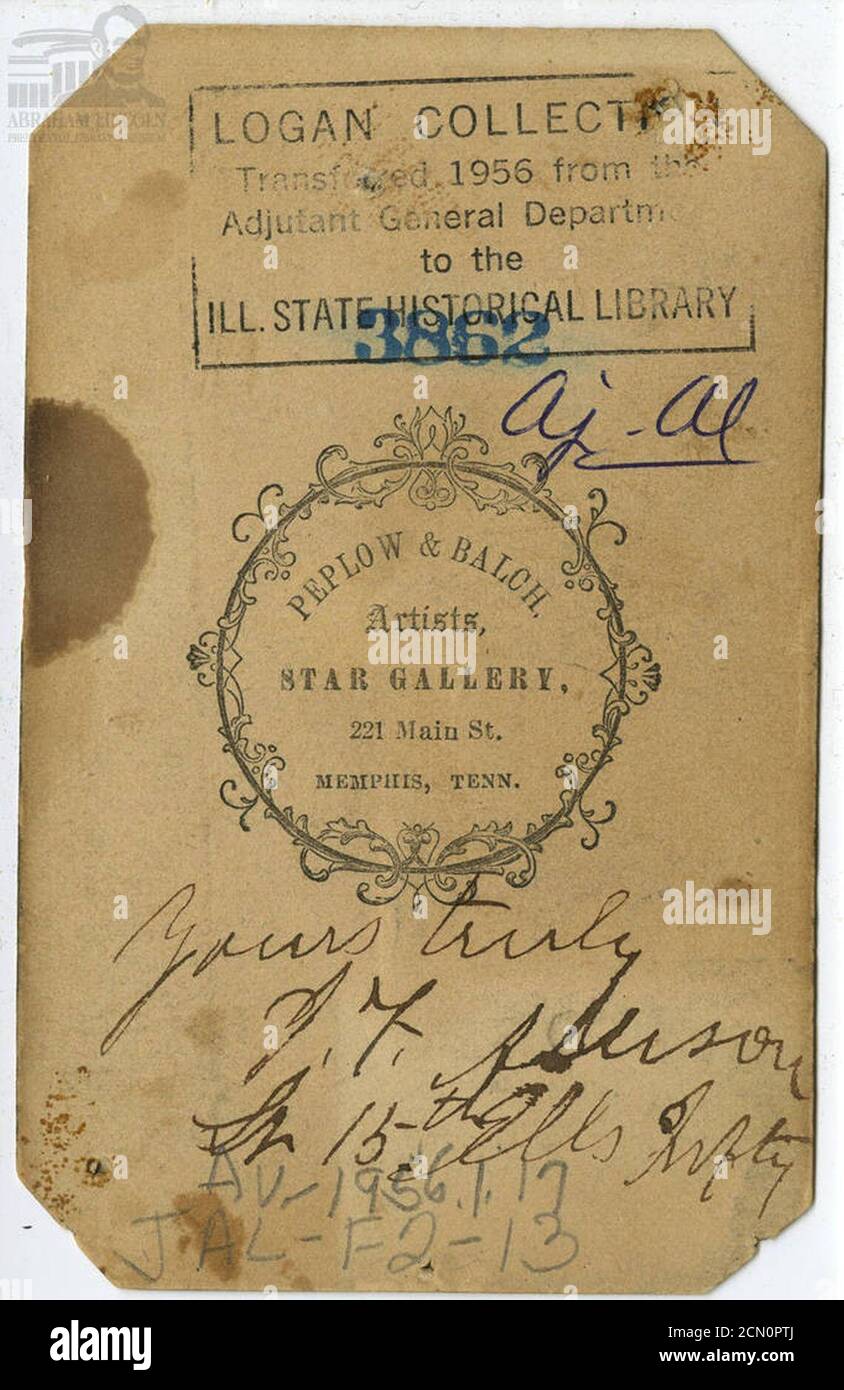 ABRAHAM LINCOLN
LOGAN COLLECTI
Transferred 1956 from the
Adjutant General Departme
to the
ILL. STATE HISTORICAL LIBRARY
3862
aj-al
PEPLOW & BALCH,
Artists,
STAR GALLERY,
221 Main St.
MEMPHIS, TENN.
Yours truly
15th Ills Infty
AV-1956.1.17
JAL-F2-13
alamy
Image ID: 2CN0PTJ
www.alamy.com